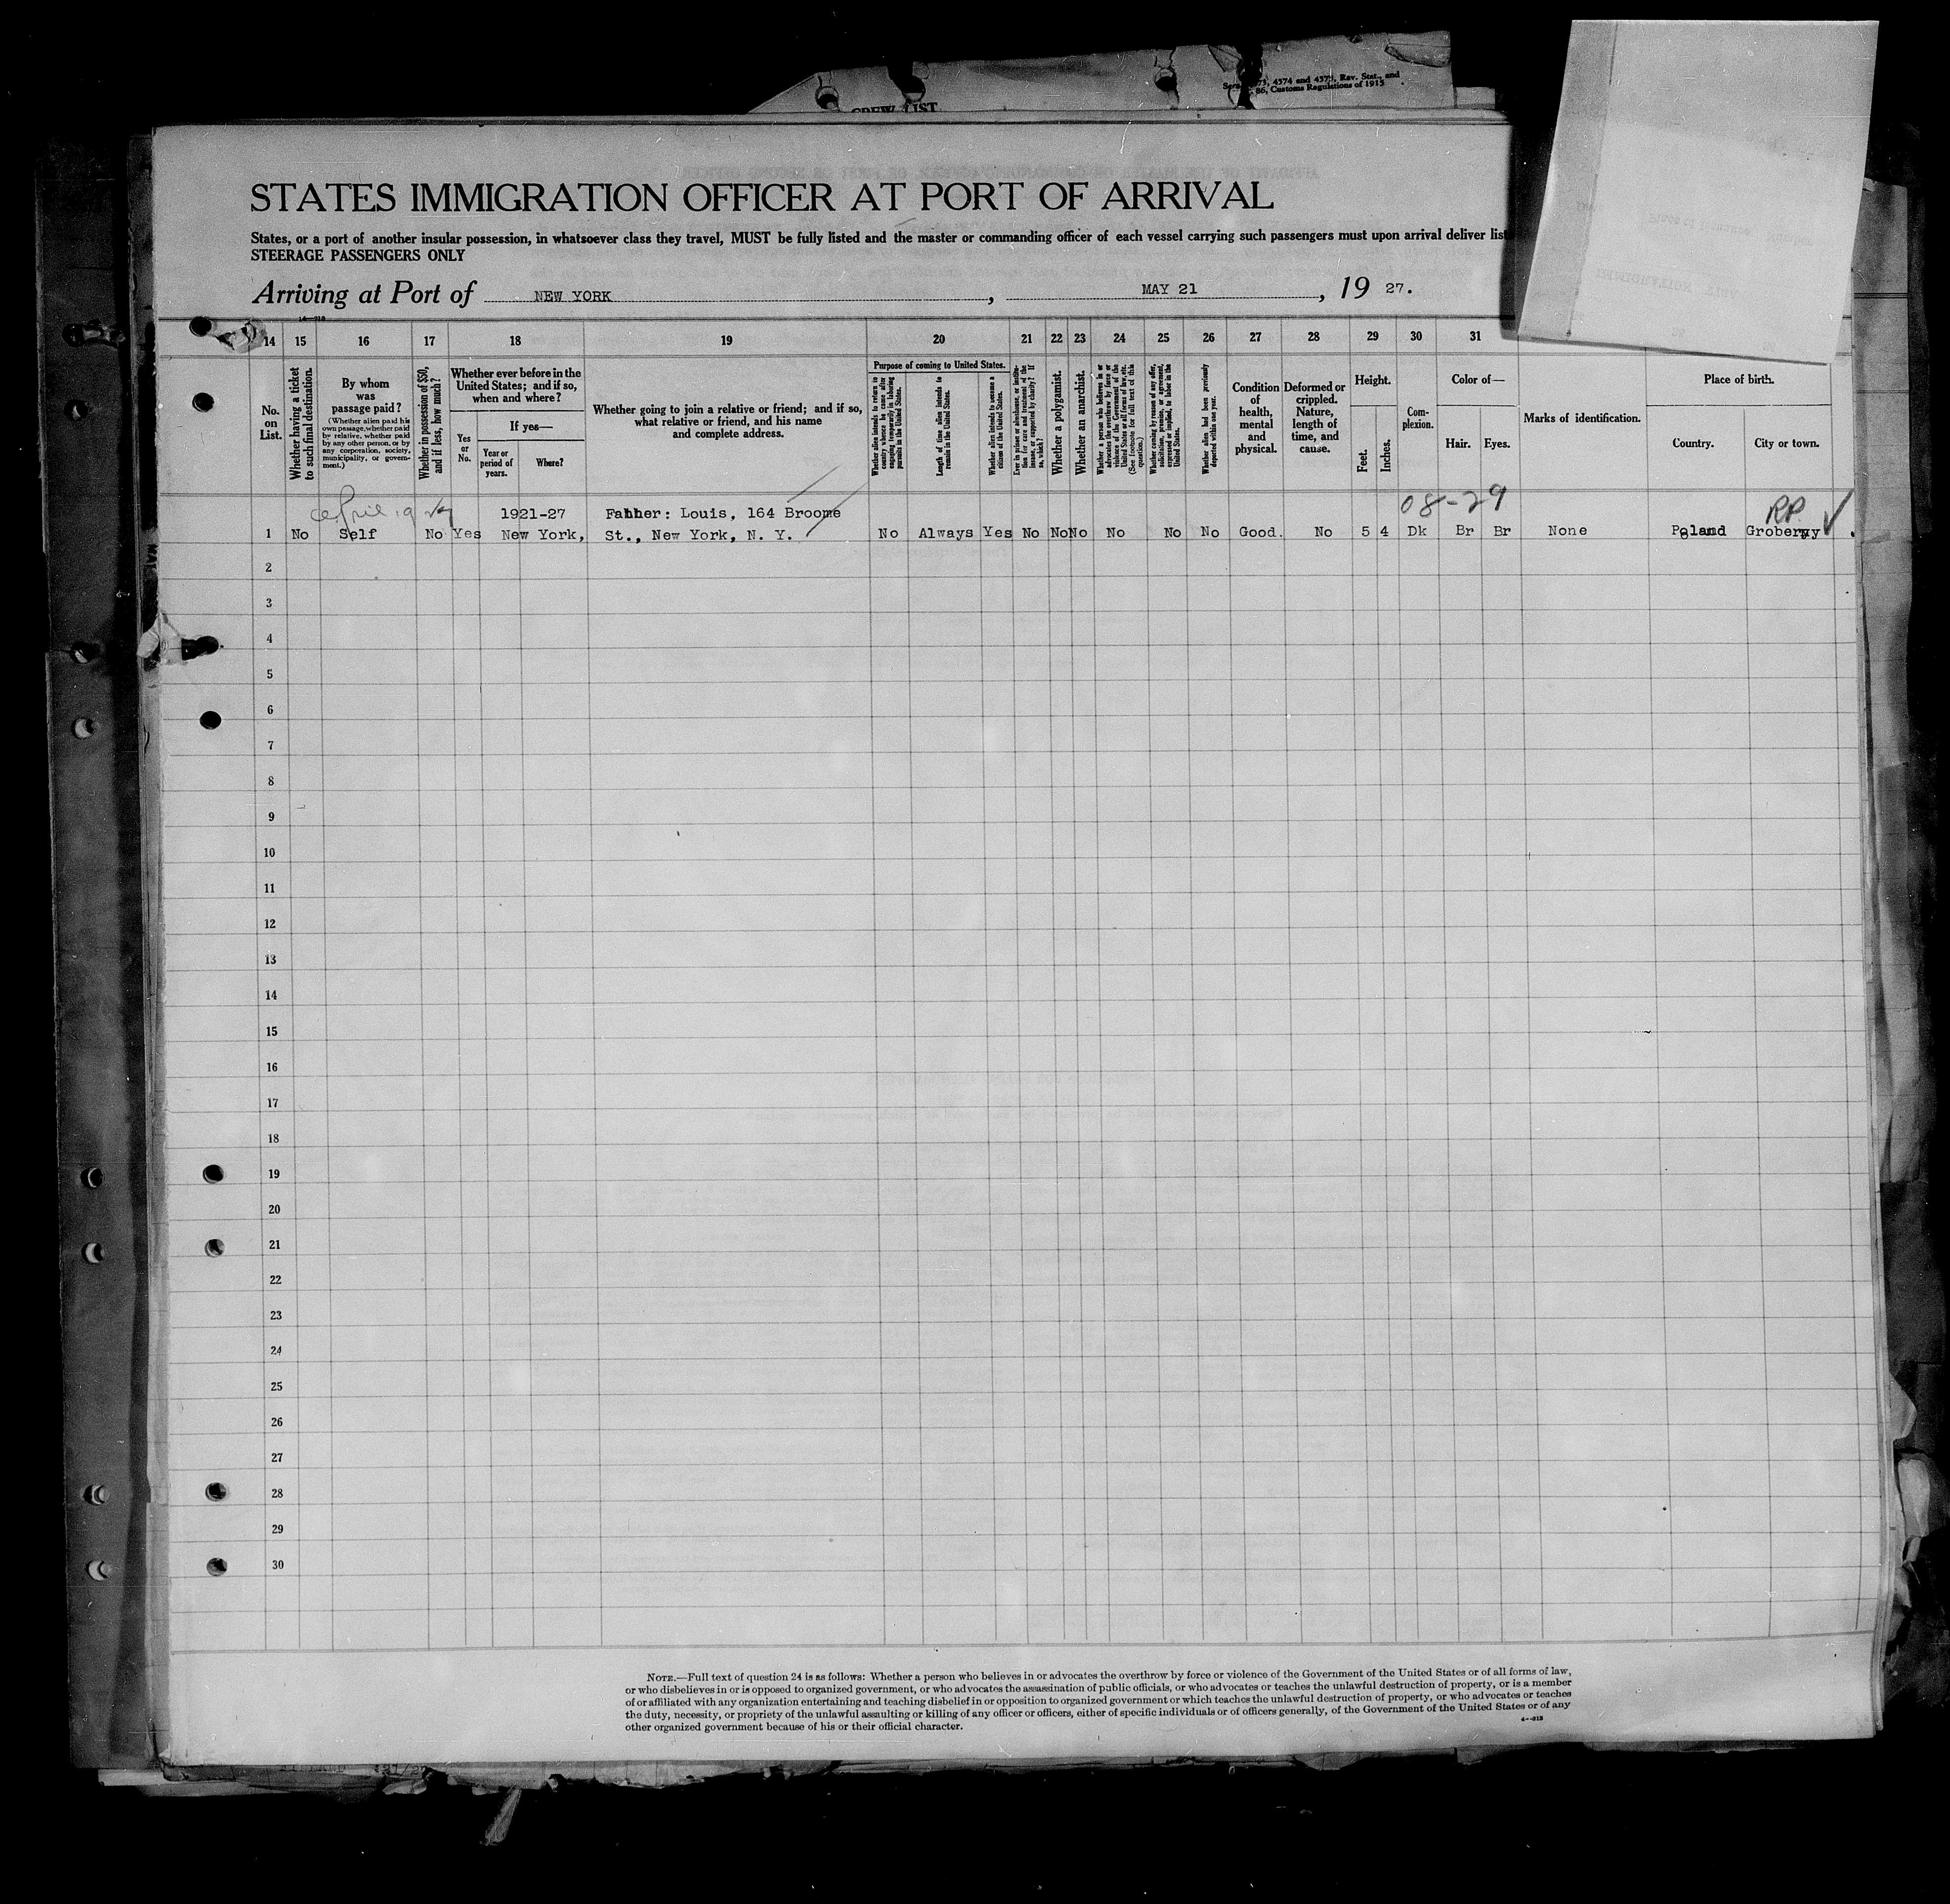 CREW LIST
4574 and 4575, Rev. Stat., and
86, Customs Regulations of 1915
STATES IMMIGRATION OFFICER AT PORT OF ARRIVAL
States, or a port of another insular possession, in whatsoever class they travel, MUST be fully listed and the master or commanding officer of each vessel carrying such passengers must upon arrival deliver list
STEERAGE PASSENGERS ONLY
Arriving at Port of NEW YORK, MAY 21, 19 27.
14 15 16 17 18 19 20 21 22 23 24 25 26 27 28 29 30 31
No. on List.
Whether having a ticket to such final destination.
By whom was passage paid?
(Whether alien paid his own passage, whether paid by relative, whether paid by any other person, or by any corporation, society, municipality, or government.)
Whether in possession of $50, and if less, how much?
Whether ever before in the United States; and if so, when and where?
Yes or No.
If yes—
Year or period of years.
Where?
Whether going to join a relative or friend; and if so, what relative or friend, and his name and complete address.
Purpose of coming to United States.
Whether alien intends to return to country whence he came after engaging temporarily in laboring pursuits in the United States.
Length of time alien intends to remain in the United States.
Whether alien intends to become a citizen of the United States.
Ever in prison or almshouse, or institution for care and treatment of the insane, or supported by charity? If so, which?
Whether a polygamist.
Whether an anarchist.
Whether a person who believes in or advocates the overthrow by force or violence of the Government of the United States or all forms of law, etc. (See footnote for full text of this question.)
Whether coming by reason of any offer, solicitation, promise, or agreement, expressed or implied, to labor in the United States.
Whether alien had been previously deported within one year.
Condition of health, mental and physical.
Deformed or crippled. Nature, length of time, and cause.
Height.
Feet.
Inches.
Complexion.
Color of—
Hair.
Eyes.
Marks of identification.
Place of birth.
Country.
City or town.
1921-27 Father: Louis, 164 Broome 08-29 RP
1 No Self No Yes New York, St., New York, N. Y. No Always Yes No No No No No No Good. No 5 4 Dk Br Br None Poland
2
3
4
5
6
7
8
9
10
11
12
13
14
15
16
17
18
19
20
21
22
23
24
25
26
27
28
29
30
NOTE.—Full text of question 24 is as follows: Whether a person who believes in or advocates the overthrow by force or violence of the Government of the United States or of all forms of law,
or who disbelieves in or is opposed to organized government, or who advocates the assassination of public officials, or who advocates or teaches the unlawful destruction of property, or is a member
of or affiliated with any organization entertaining and teaching disbelief in or opposition to organized government or which teaches the unlawful destruction of property, or who advocates or teaches
the duty, necessity, or propriety of the unlawful assaulting or killing of any officer or officers, either of specific individuals or of officers generally, of the Government of the United States or of any
other organized government because of his or their official character.